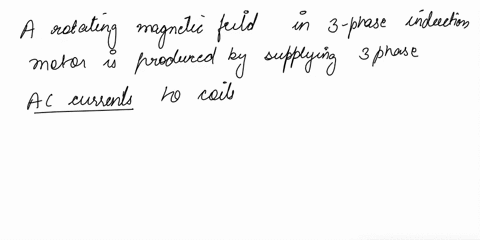 A rotating magnetic field in 3-phase induction
motor is produced by supplying 3 phase
AC currents to coils